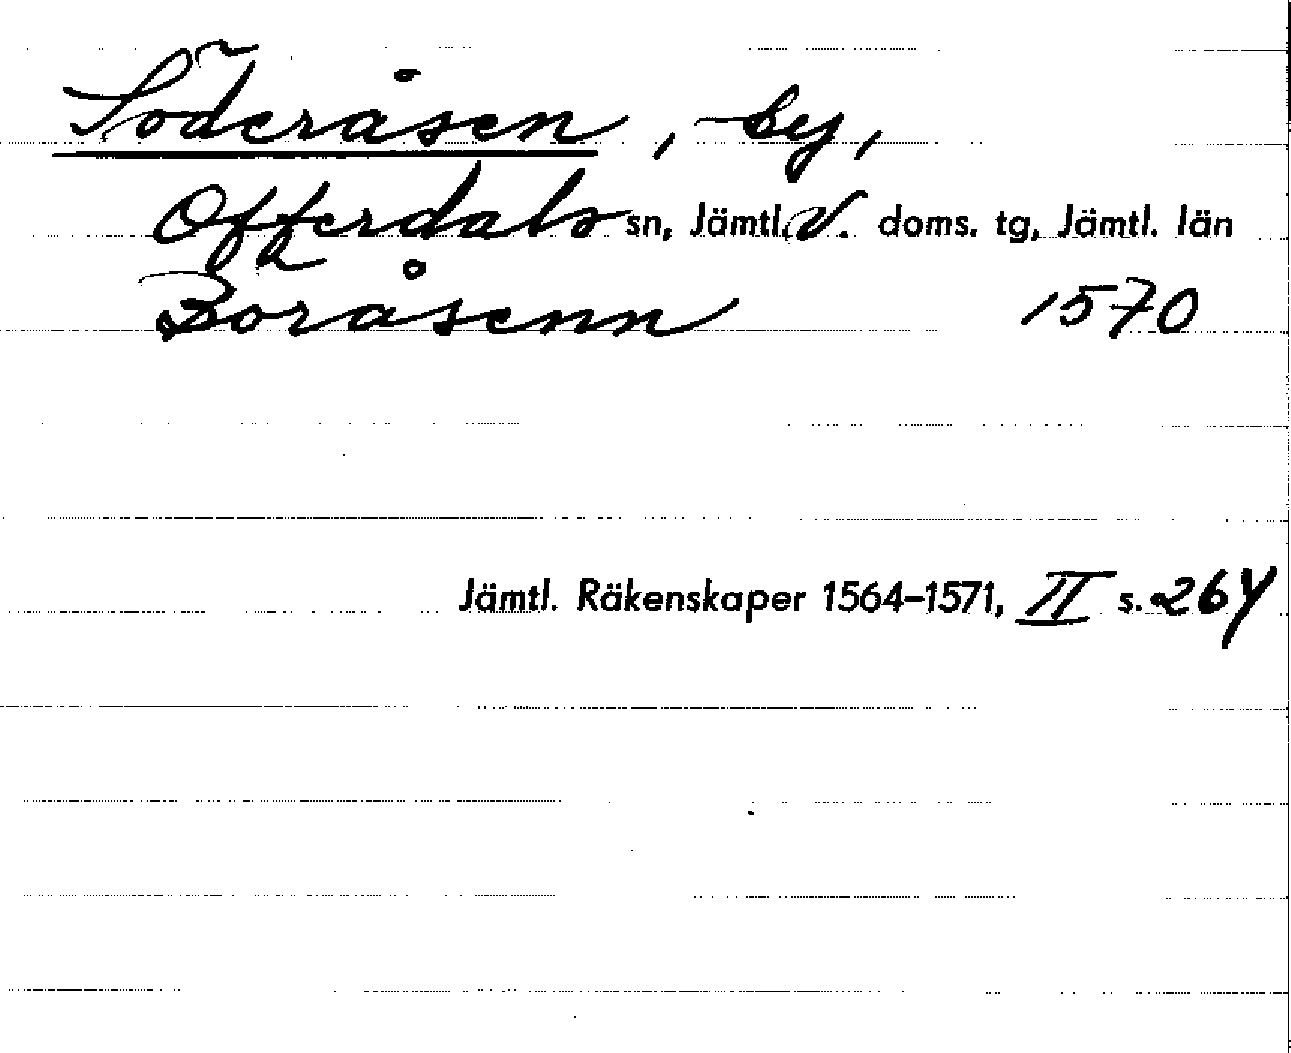 Söderåsen, by,
Offerdals sn, Jämtl. V. doms. tg, Jämtl. län
Boråsenn 1570
Jämtl. Räkenskaper 1564-1571, II s. 264